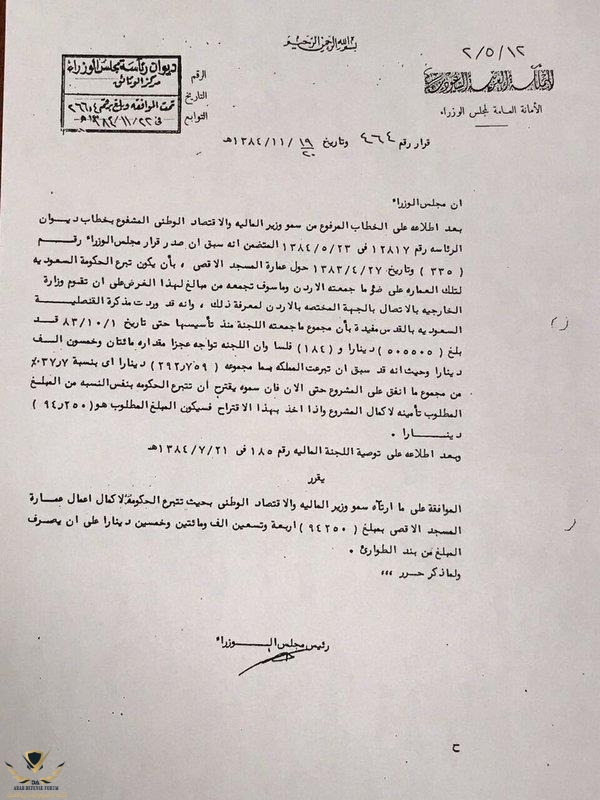 بسم الله الرحمن الرحيم
٢/٥/١٢
المملكة العربية السعودية
الأمانة العامة لمجلس الوزراء
الرقم
التاريخ
التوابع
ديوان رئاسة مجلس الوزراء
مركز الوثائق
تمت الموافقه وبلغ برقم ٢٦٦٠٤
في ٢٢/١١/١٣٨٤هـ
قرار رقم ٤٦٤ وتاريخ ١٩/٢٠/١١/١٣٨٤هـ
ان مجلس الوزراء
بعد اطلاعه على الخطاب المرفوع من سمو وزير الماليه والاقتصاد الوطنى المشفوع بخطاب ديوان
الرئاسه رقم ١٢٨١٧ فى ١٣٨٤/٥/٢٣ المتضمن انه سبق ان صدر قرار مجلس الوزراء رقم
( ٣٣٥ ) وتاريخ ١٣٨٣/٤/٢٧ حول عمارة المسجد الاقصى ، بأن يكون تبرع الحكومة السعوديه
لتلك العماره على ضوء ما جمعته الاردن وماسوف تجمعه من مبالغ لهذا الغرض على ان تقوم وزارة
الخارجيه بالاتصال بالجهة المختصه بالاردن لمعرفة ذلك ، وانه قد وردت مذكرة القنصلية
السعوديه بالقدس مفيدة بأن مجموع ماجمعته اللجنة منذ تأسيسها حتى تاريخ ٨٣/١٠/١ قد
بلغ ( ٥٠٥٥٠٥ ) دينارا و ( ١٨٤ ) فلسا وان اللجنه تواجه عجزا مقداره مائتان وخمسون الف
دينارا وحيث انه قد سبق ان تبرعت المملكه بما مجموعه ( ٢٩٢٫٧٥٩ ) دينارا اى بنسبة ٣٧٫٧٪
من مجموع ما انفق على المشروع حتى الان فان سموه يقترح أن تتبرع الحكومه بنفس النسبه من المبلغ
المطلوب تأمينه لاكمال المشروع واذا اخذ بهذا الاقتراح فسيكون المبلغ المطلوب هو ( ٩٤٫٢٥٠ )
دينـــــارا .
وبعد اطلاعه على توصية اللجنة الماليه رقم ١٨٥ فى ١٣٨٤/٧/٢١هـ
يقرر
الموافقة على ما ارتآه سمو وزير الماليه والاقتصاد الوطنى بحيث تتبرع الحكومة لاكمال اعمال عمارة
المسجد الاقصى بمبلغ ( ٩٤٢٥٠ ) اربعة وتسعين الف ومائتين وخمسين دينارا على ان يصرف
المبلغ من بند الطوارئ .
ولماذكر حـرر ،،،
رئيس مجلس الـــوزراء
ح
ARAB DEFENSE FORUM